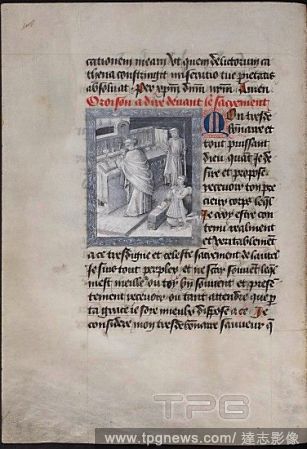 cationem meam ut quem delictorum ca
thena constringit miseratio tue pietatis
absoluat. Per xpm dnm nrm. Amen
Oroison a dire deuant le sacrement
Mon tresde
bonaire et
tout puissant
dieu quant Je de
sire et propose
receuoir ton pre
cieux corps lequel
Je croy estre con
tenu realment
et veritablement
a ce tresdigne et celeste sacrement de lautel
Je suis tout perplex et ne scay souuent lequel
mest meilleur ou toy bien souuent et prese
tement receuoir ou tant attendre que par
ta grace ie soie mieulx dispose a ce. Je
considere mon tresdebonnaire sauueur que
TPG
www.tpgnews.com/達志影像